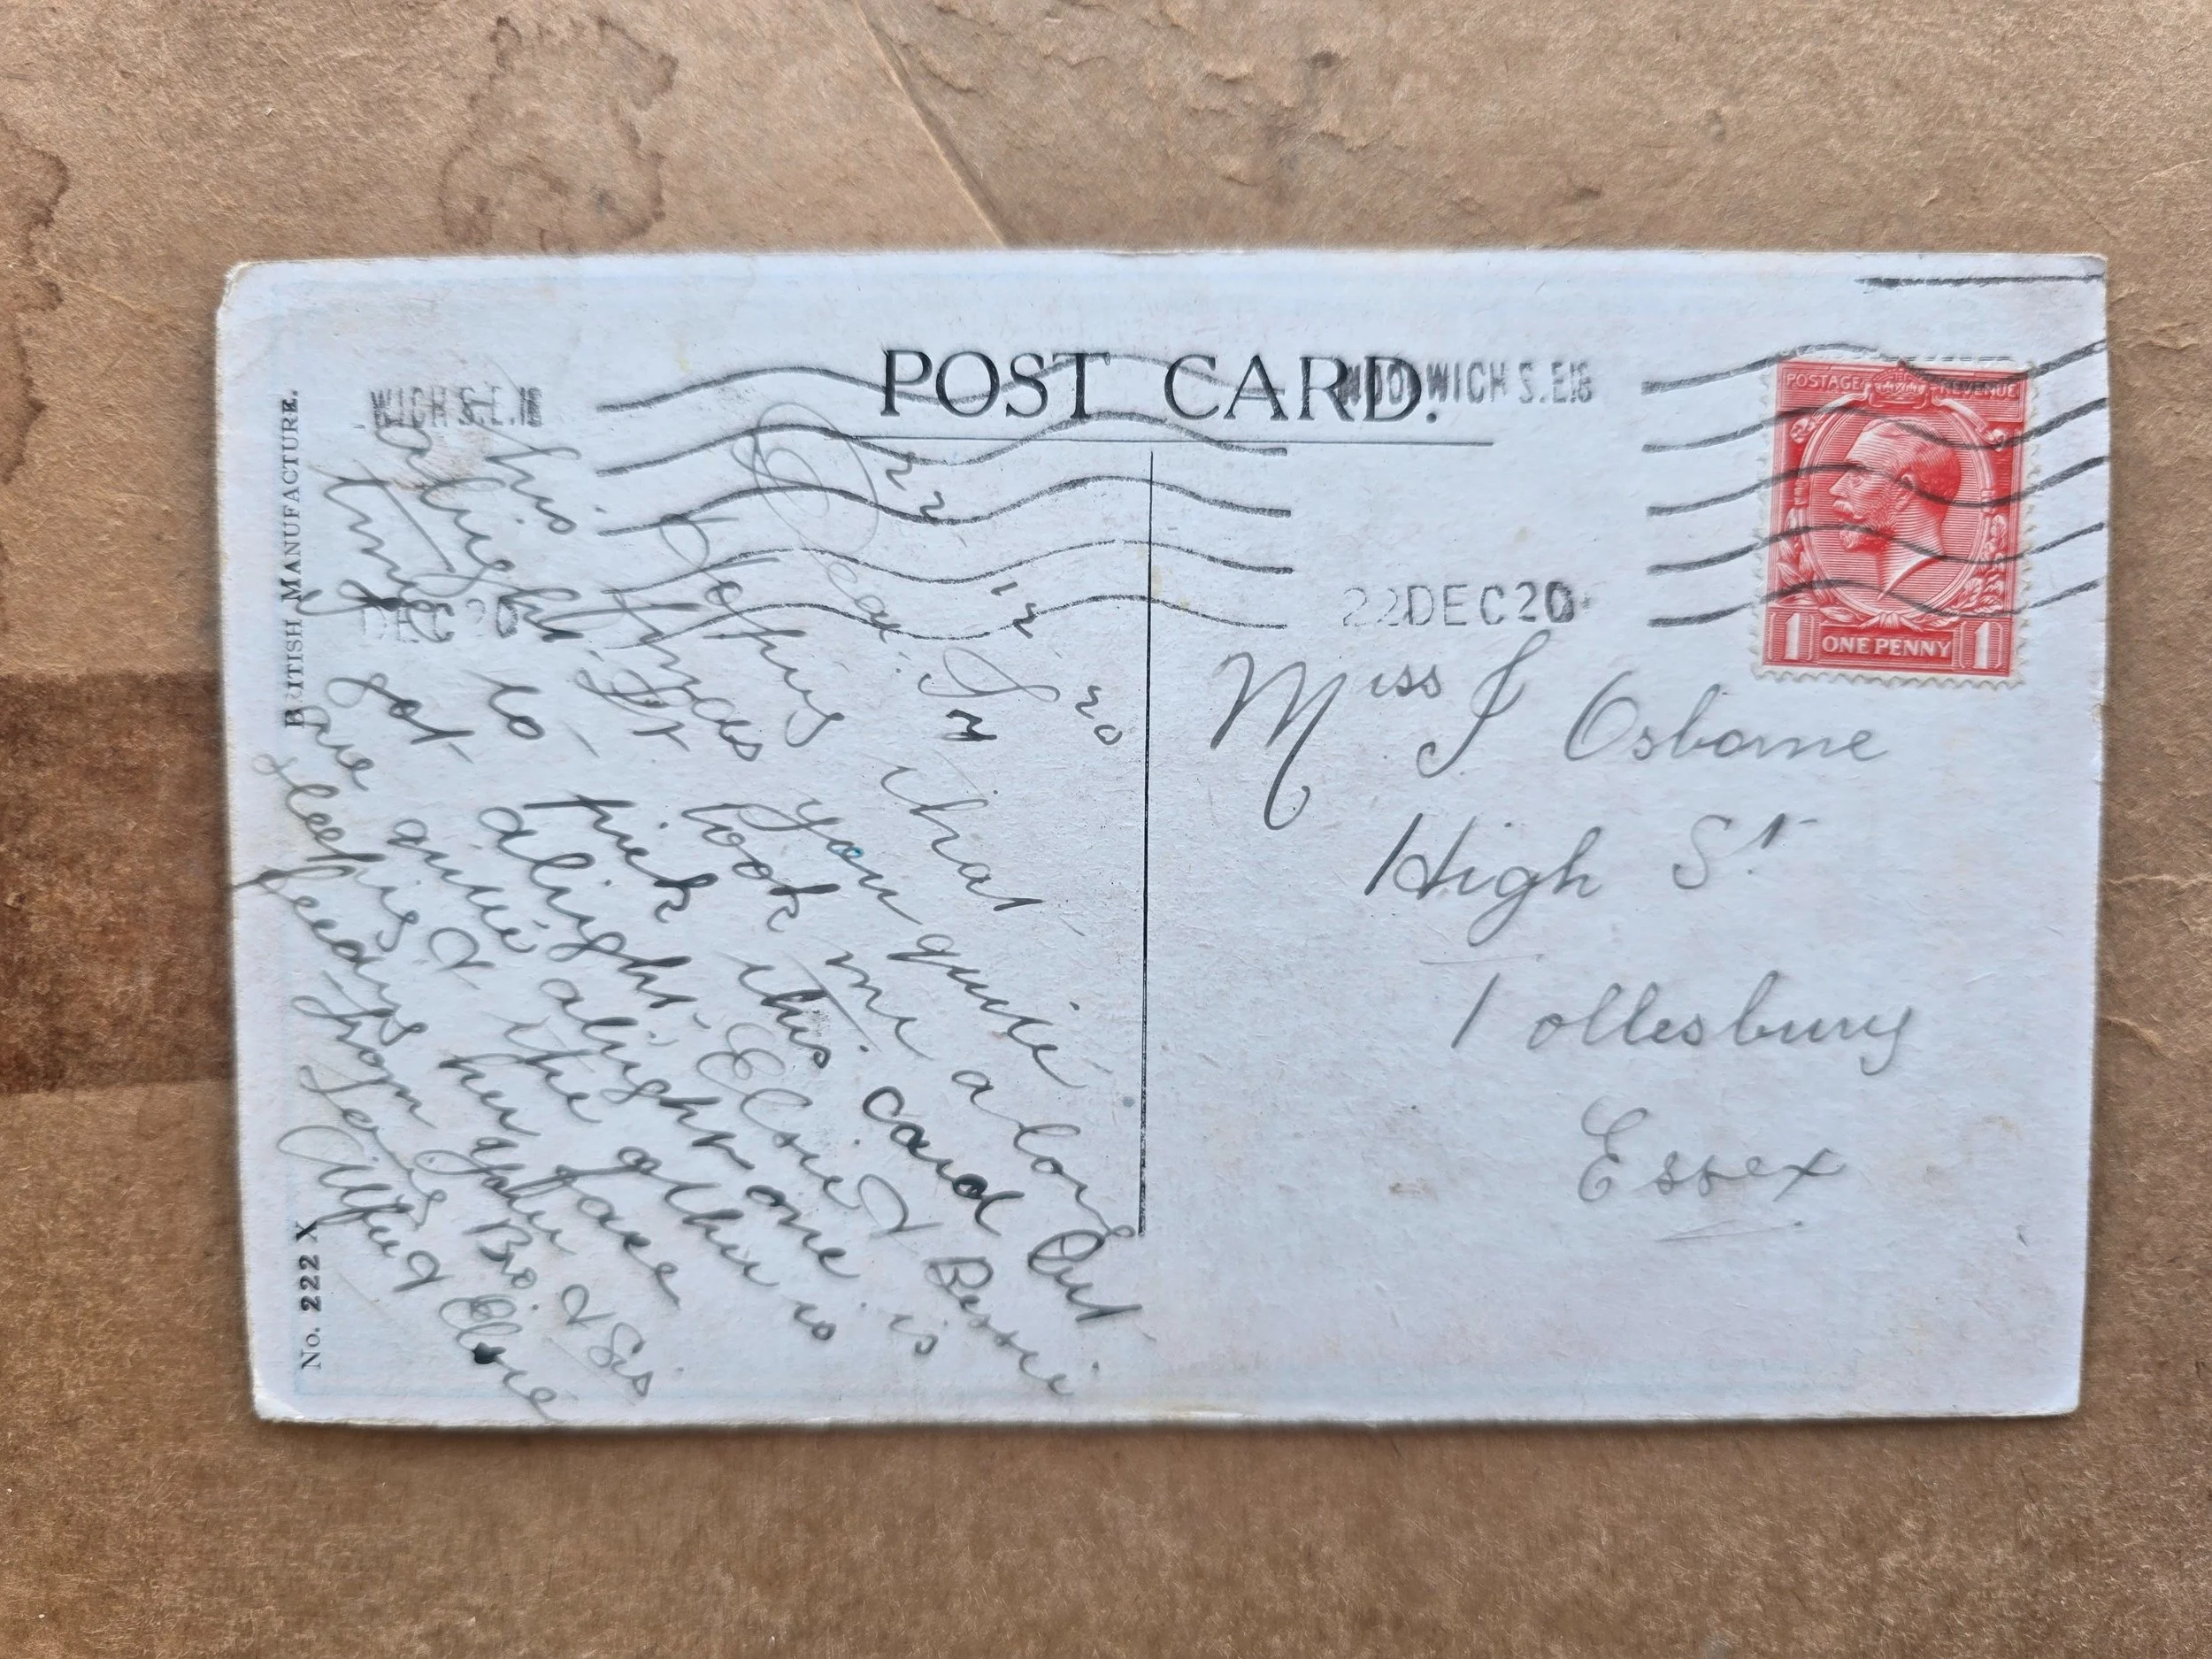 BRITISH MANUFACTURE.
No. 222 X
POST CARD.
WICH S.E.18
DEC 20
WOOLWICH S.E.18
22 DEC 20
POSTAGE REVENUE
1 ONE PENNY 1
22 12 20
Dear J
Hoping that
this finds you quite
alright. It took me a long
time to pick this card but
got alright Elsie & Bessie
are quite alright one is
sleeping & the other is
feeding her face
from your Bro & Sis
Alf & Elsie
Miss J Osborne
High St
Tollesbury
Essex